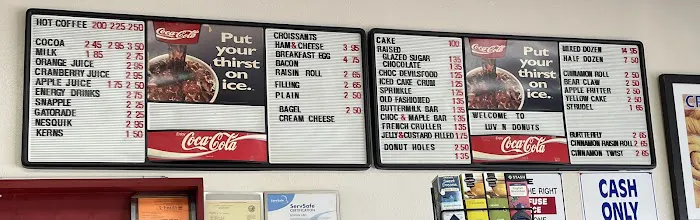 HOT COFFEE 200 225 250
COCOA 2.45 2.95 3.50
MILK 1.85 2.75
ORANGE JUICE 2.95
CRANBERRY JUICE 2.95
APPLE JUICE 1.75 2.50
ENERGY DRINKS 2.75
SNAPPLE 2.25
GATORADE 2.25
NESQUIK 2.95
KERNS 1.50
Coca-Cola
Put your thirst on ice.
Enjoy Coca-Cola
CROISSANTS
HAM & CHEESE 3.95
BREAKFAST EGG 4.75
BACON
RAISIN ROLL 2.65
FILLING 2.65
PLAIN 2.50
BAGEL 2.50
CREAM CHEESE
CAKE 100
RAISED
GLAZED SUGAR 1.35
CHOCOLATE 1.35
CHOC DEVILSFOOD 1.25
ICED CAKE CRUM 1.25
SPRINKLE 1.35
OLD FASHIONED 1.35
BUTTERMILK BAR 1.35
CHOC & MAPLE BAR 1.35
FRENCH CRULLER 1.35
JELLY&CUSTARD FILLED 1.75
DONUT HOLES 2.50
1.35
Coca-Cola
Put your thirst on ice.
WELCOME TO
LUV N DONUTS
Enjoy Coca-Cola
MIXED DOZEN 14.95
HALF DOZEN 7.50
CINNAMON ROLL 2.50
BEAR CLAW 2.50
APPLE FRITTER 2.50
YELLOW CAKE 2.50
STRUDEL 1.65
BUTTERFLY 2.65
CINNAMON RAISIN ROLL 2.65
CINNAMON TWIST 2.65
ServSafe
ServSafe
CERTIFICATION
STASH
THE RIGHT
CASH
ONLY